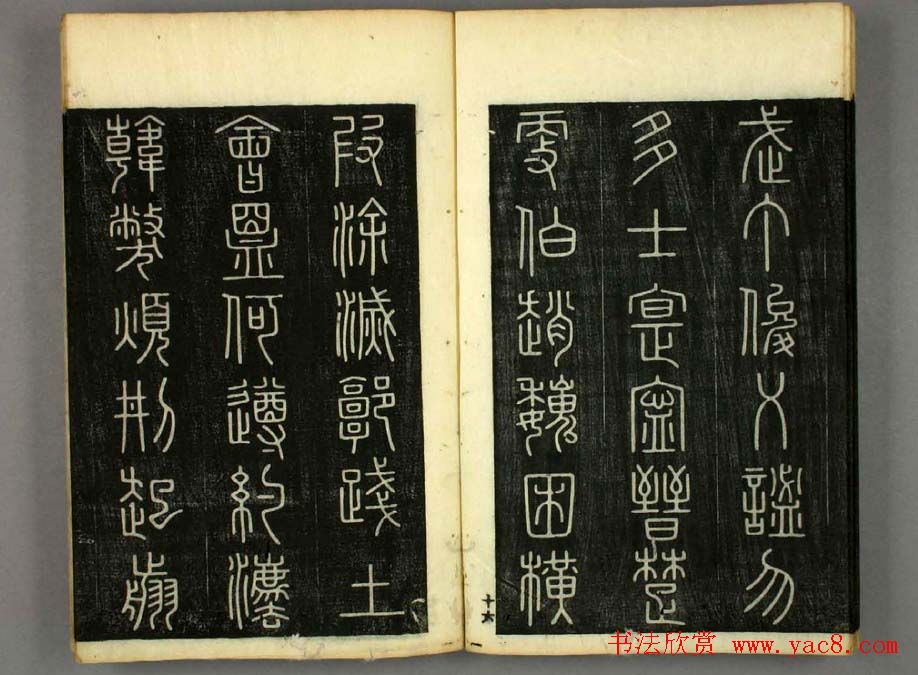 武丁俊乂謐勿
多士寔寧晉楚
更伯趙魏困橫
叚涂滅郭踐土
會盟何遵約灋
韓弊煩刑起翦
十六
书法欣赏 www.yac8.com